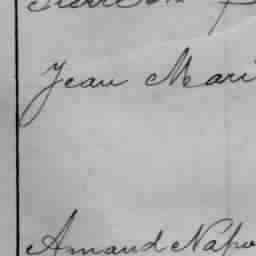 Jean Mari
Amand Napo